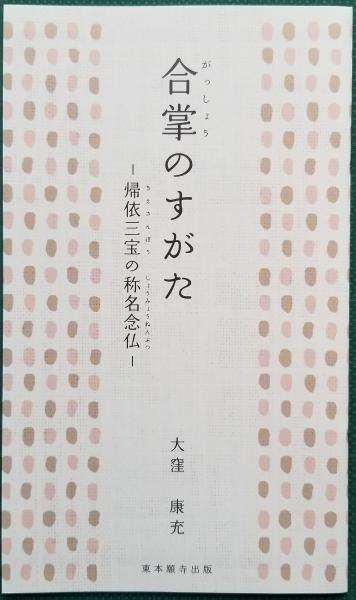 合掌のすがた
がっしょう
－帰依三宝の称名念仏－
きえさんぼう
しょうみょうねんぶつ
大窪 康充
東本願寺出版